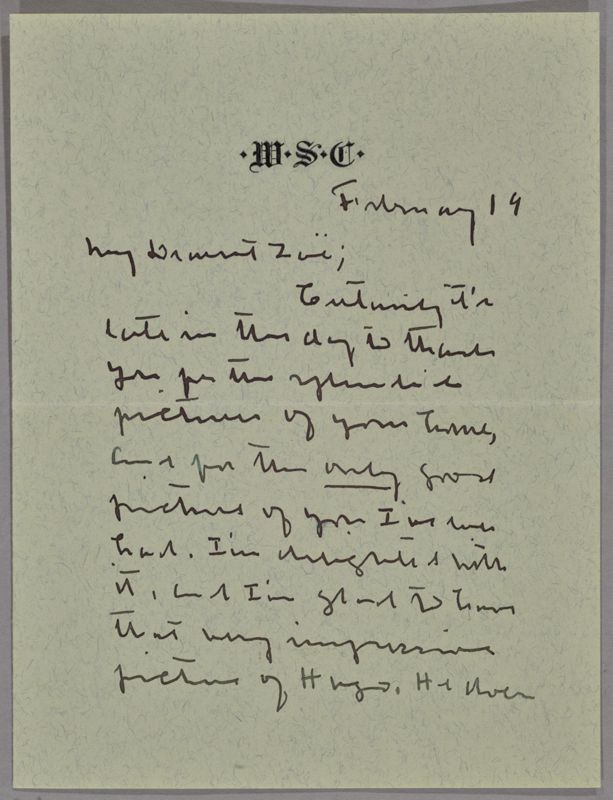 ·W·S·C·
February 19
My Dearest Zoë;
Certainly it's
late in the day to thank
you for the splendid
pictures of your home,
and for the only good
picture of you I've ever
had. I'm delighted with
it, and I'm glad to have
that very impressive
picture of Hugo. He does